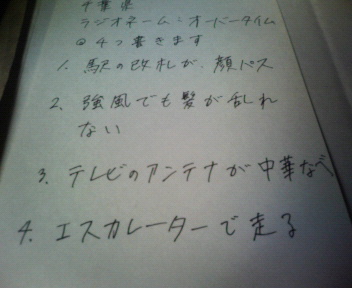 千葉県
ラジオネーム・オーバータイム
@ 4つ書きます
1. 駅の改札が、顔パス
2. 強風でも髪が乱れ
ない
3. テレビのアンテナが中華なべ
4. エスカレーターで走る